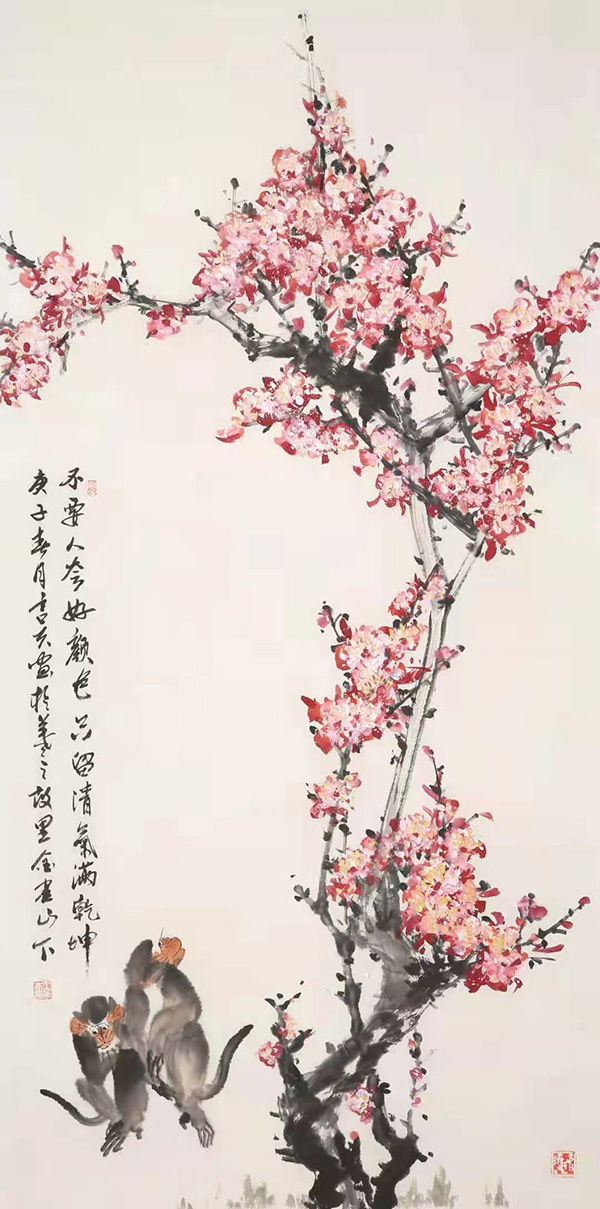 不要人夸好颜色只留清氣滿乾坤
庚子春月画於羲之故里金雀山下